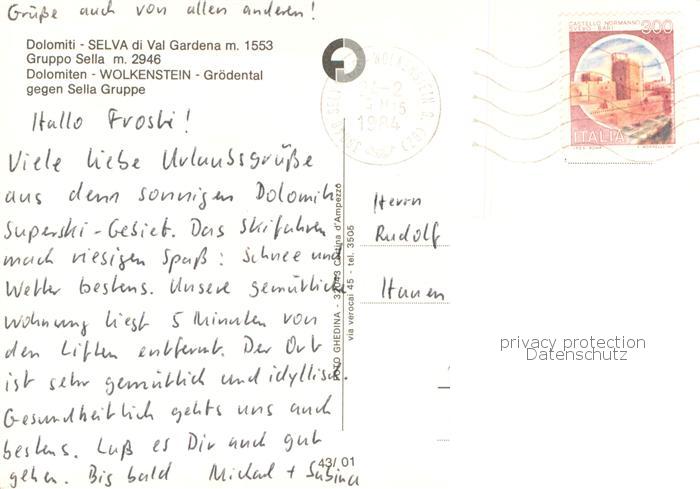 Grüße auch von allen anderen!
Dolomiti - SELVA di Val Gardena m. 1553
Gruppo Sella m. 2946
Dolomiten - WOLKENSTEIN - Grödental
gegen Sella Gruppe
Hallo Froski!
Viele liebe Urlaubsgrüße
aus dem sonnigen Dolomiti
Superski-Gebiet. Das Skifahren
mach riesigen Spaß: Schnee und
Wetter bestens. Unsere gemütliche
Wohnung liegt 5 Minuten von
den Liften entfernt. Der Ort
ist sehr gemütlich und idyllisch.
Gesundheitlich gehts uns auch
bestens. Laß es Dir auch gut
gehen. Bis bald Michael + Sabina
43/01
FOTO GHEDINA - 32043 Cortina d'Ampezzo
via verocai 45 - tel. 3505
1984
CASTELLO NORMANNO
SVEVO - BARI
300
ITALIA
Herrn
Rudolf
Hauen
privacy protection
Datenschutz